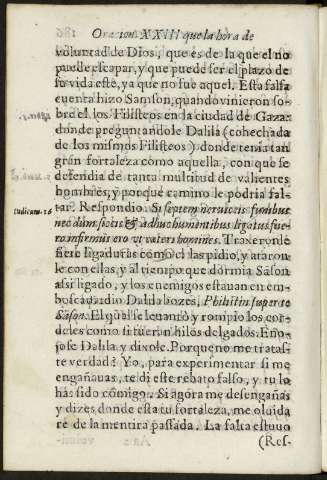 Oracion. XXIII que la hora de
voluntad de Dios, que es de la que el no
puede escapar, y que puede ser el plazo de
su vida este, ya que no fue aquel. Esta falsa
cuenta hizo Samson, quando vinieron so-
bre el los Filisteos en la ciudad de Gaza:
donde preguntandole Dalila (cohechada
de los mismos Filisteos) donde tenia tan
gran fortaleza como aquella, con que se
defendia de tanta multitud de valientes
hombres, y porque camino le podria fal-
Iudicum. 16
tar? Respondio. Si septem neruiceis funibus
nec dum siccis & adhuc humentibus ligatus fue-
ro infirmus ero vt cateri homines. Traxeronle
siete ligaduras como el las pidio, y ataron-
le con ellas, y al tiempo que dormia Sãson
assi ligado, y los enemigos estauan en em-
boscada: dio Dalila bozes, Philistin super te
Sãson. El qual se leuanto y rompio los cor-
deles como si fueran hilos delgados. Eno-
jose Dalila y dixole. Porque no me tratas-
te verdad? Yo, para experimentar si me
engañauas, te di este rebato falso, y tu lo
has sido cõmigo. Si agora me desengañas
y dizes donde esta tu fortaleza, me oluida
re de la mentira passada. La falsa estuuo
(Res-